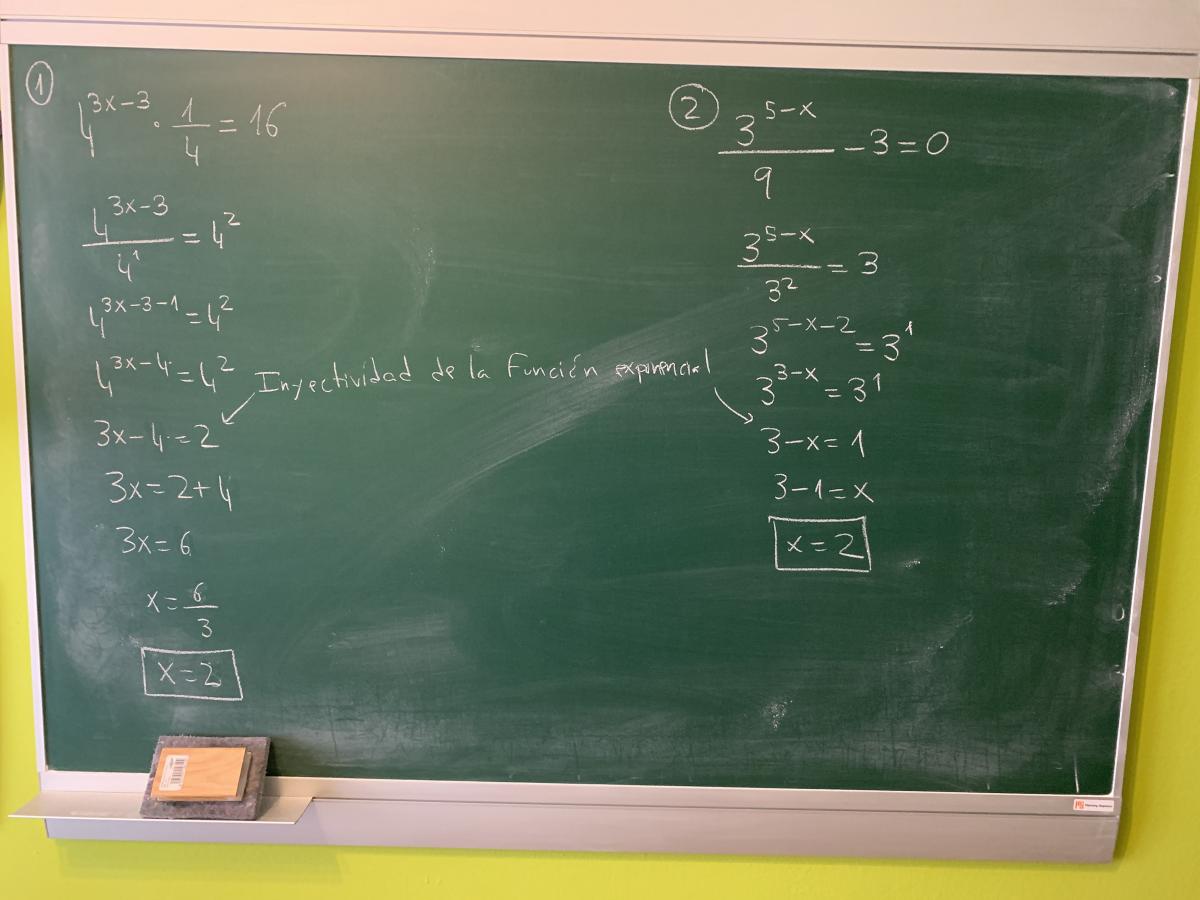 ①
4^(3x-3) · 1/4 = 16
4^(3x-3)/4^1 = 4^2
4^(3x-3-1) = 4^2
4^(3x-4) = 4^2
3x-4=2
3x=2+4
3x=6
x=6/3
x=2
Inyectividad de la Función exponencial
②
3^(5-x)/9 - 3 = 0
3^(5-x)/3^2 = 3
3^(5-x-2) = 3^1
3^(3-x) = 3^1
3-x=1
3-1=x
x=2